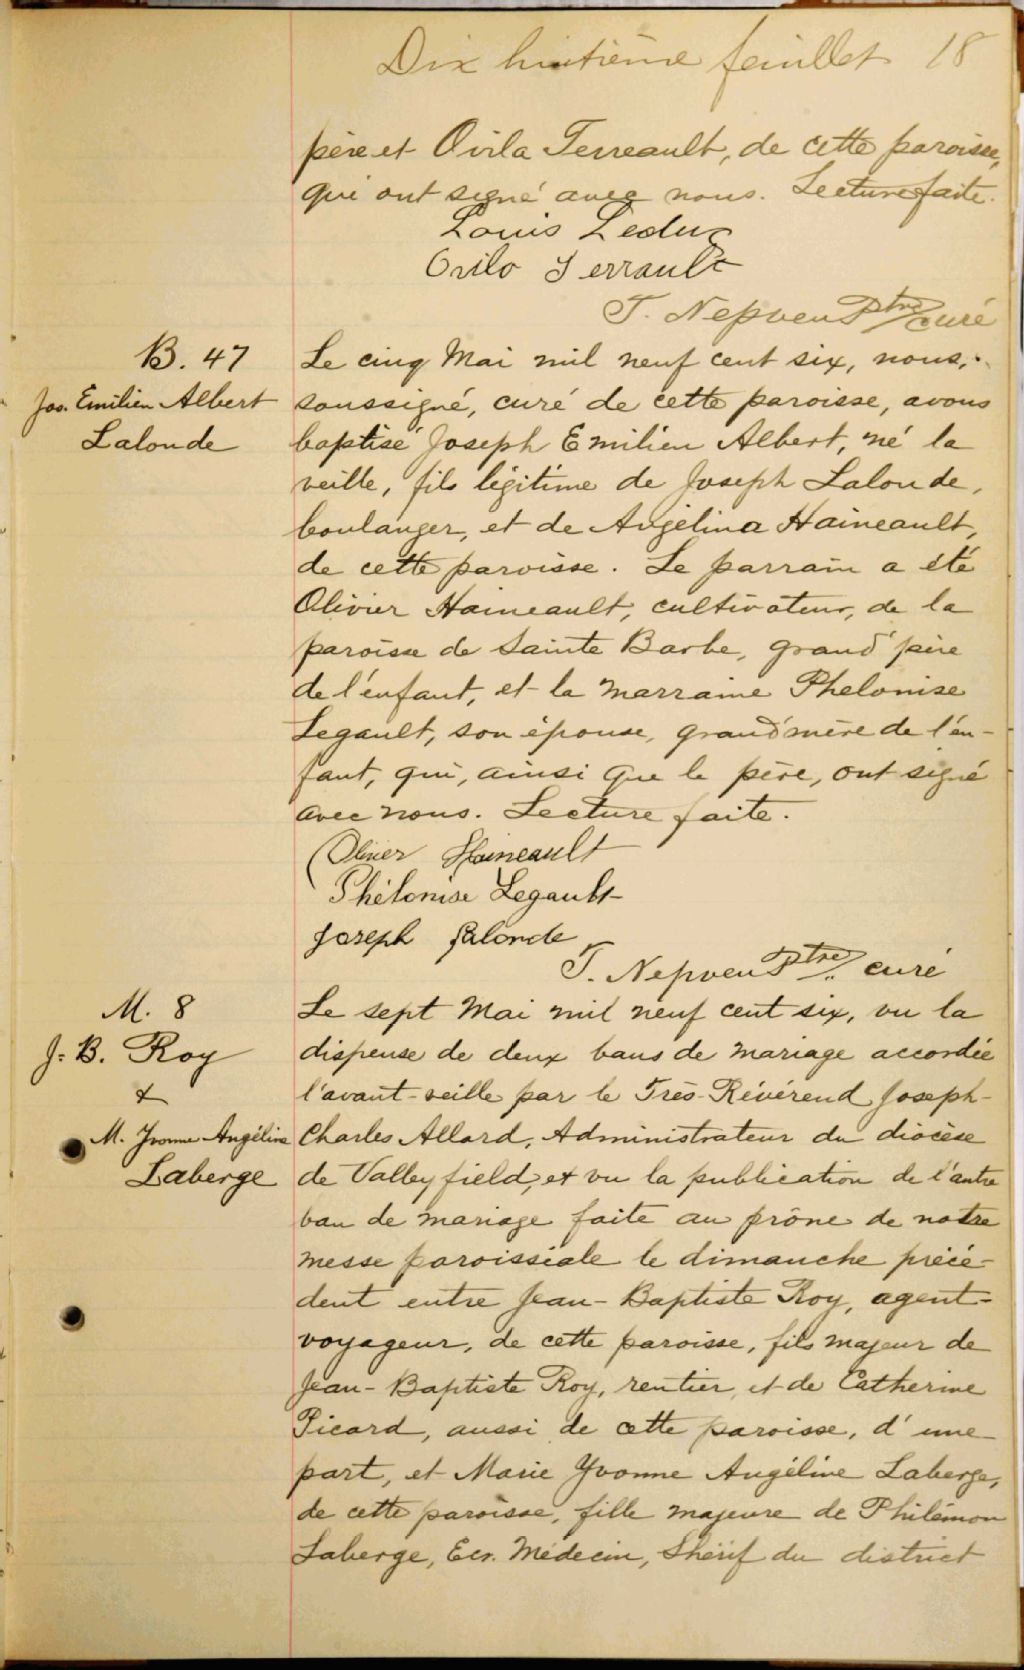 Dix huitième feuillet 18
père et Ovila Terreault, de cette paroisse,
qui ont signé avec nous. Lecture faite.
Louis Leduc
Ovila Terrault
T. Nepveu Ptre curé
B. 47
Jos. Emilien Albert
Lalonde
Le cinq Mai mil neuf cent six, nous,
soussigné, curé de cette paroisse, avons
baptisé Joseph Emilien Albert, né la
veille, fils légitime de Joseph Lalonde,
boulanger, et de Angélina Haineault,
de cette paroisse. Le parrain a été
Olivier Haineault, cultivateur, de la
paroisse de Sainte Barbe, grand'père
de l'enfant, et la marraine Phelonise
Legault, son épouse, grand'mère de l'en-
fant, qui, ainsi que le père, ont signé
avec nous. Lecture faite.
Olivier Haineault
Phélonise Legault
Joseph Lalonde
T. Nepveu Ptre. curé
M. 8
J. B. Roy
&
M. Yvonne Angéline
Laberge
Le sept Mai mil neuf cent six, vu la
dispense de deux bans de mariage accordée
l'avant-veille par le Très-Révérend Joseph-
Charles Allard, Administrateur du diocèse
de Valleyfield, et vu la publication de l'autre
ban de mariage faite au prône de notre
messe paroissiale le dimanche précé-
dent entre Jean-Baptiste Roy, agent-
voyageur, de cette paroisse, fils majeur de
Jean-Baptiste Roy, rentier, et de Catherine
Picard, aussi de cette paroisse, d'une
part, et Marie Yvonne Angéline Laberge,
de cette paroisse, fille majeure de Philémon
Laberge, Ecr. Médecin, Shérif du district